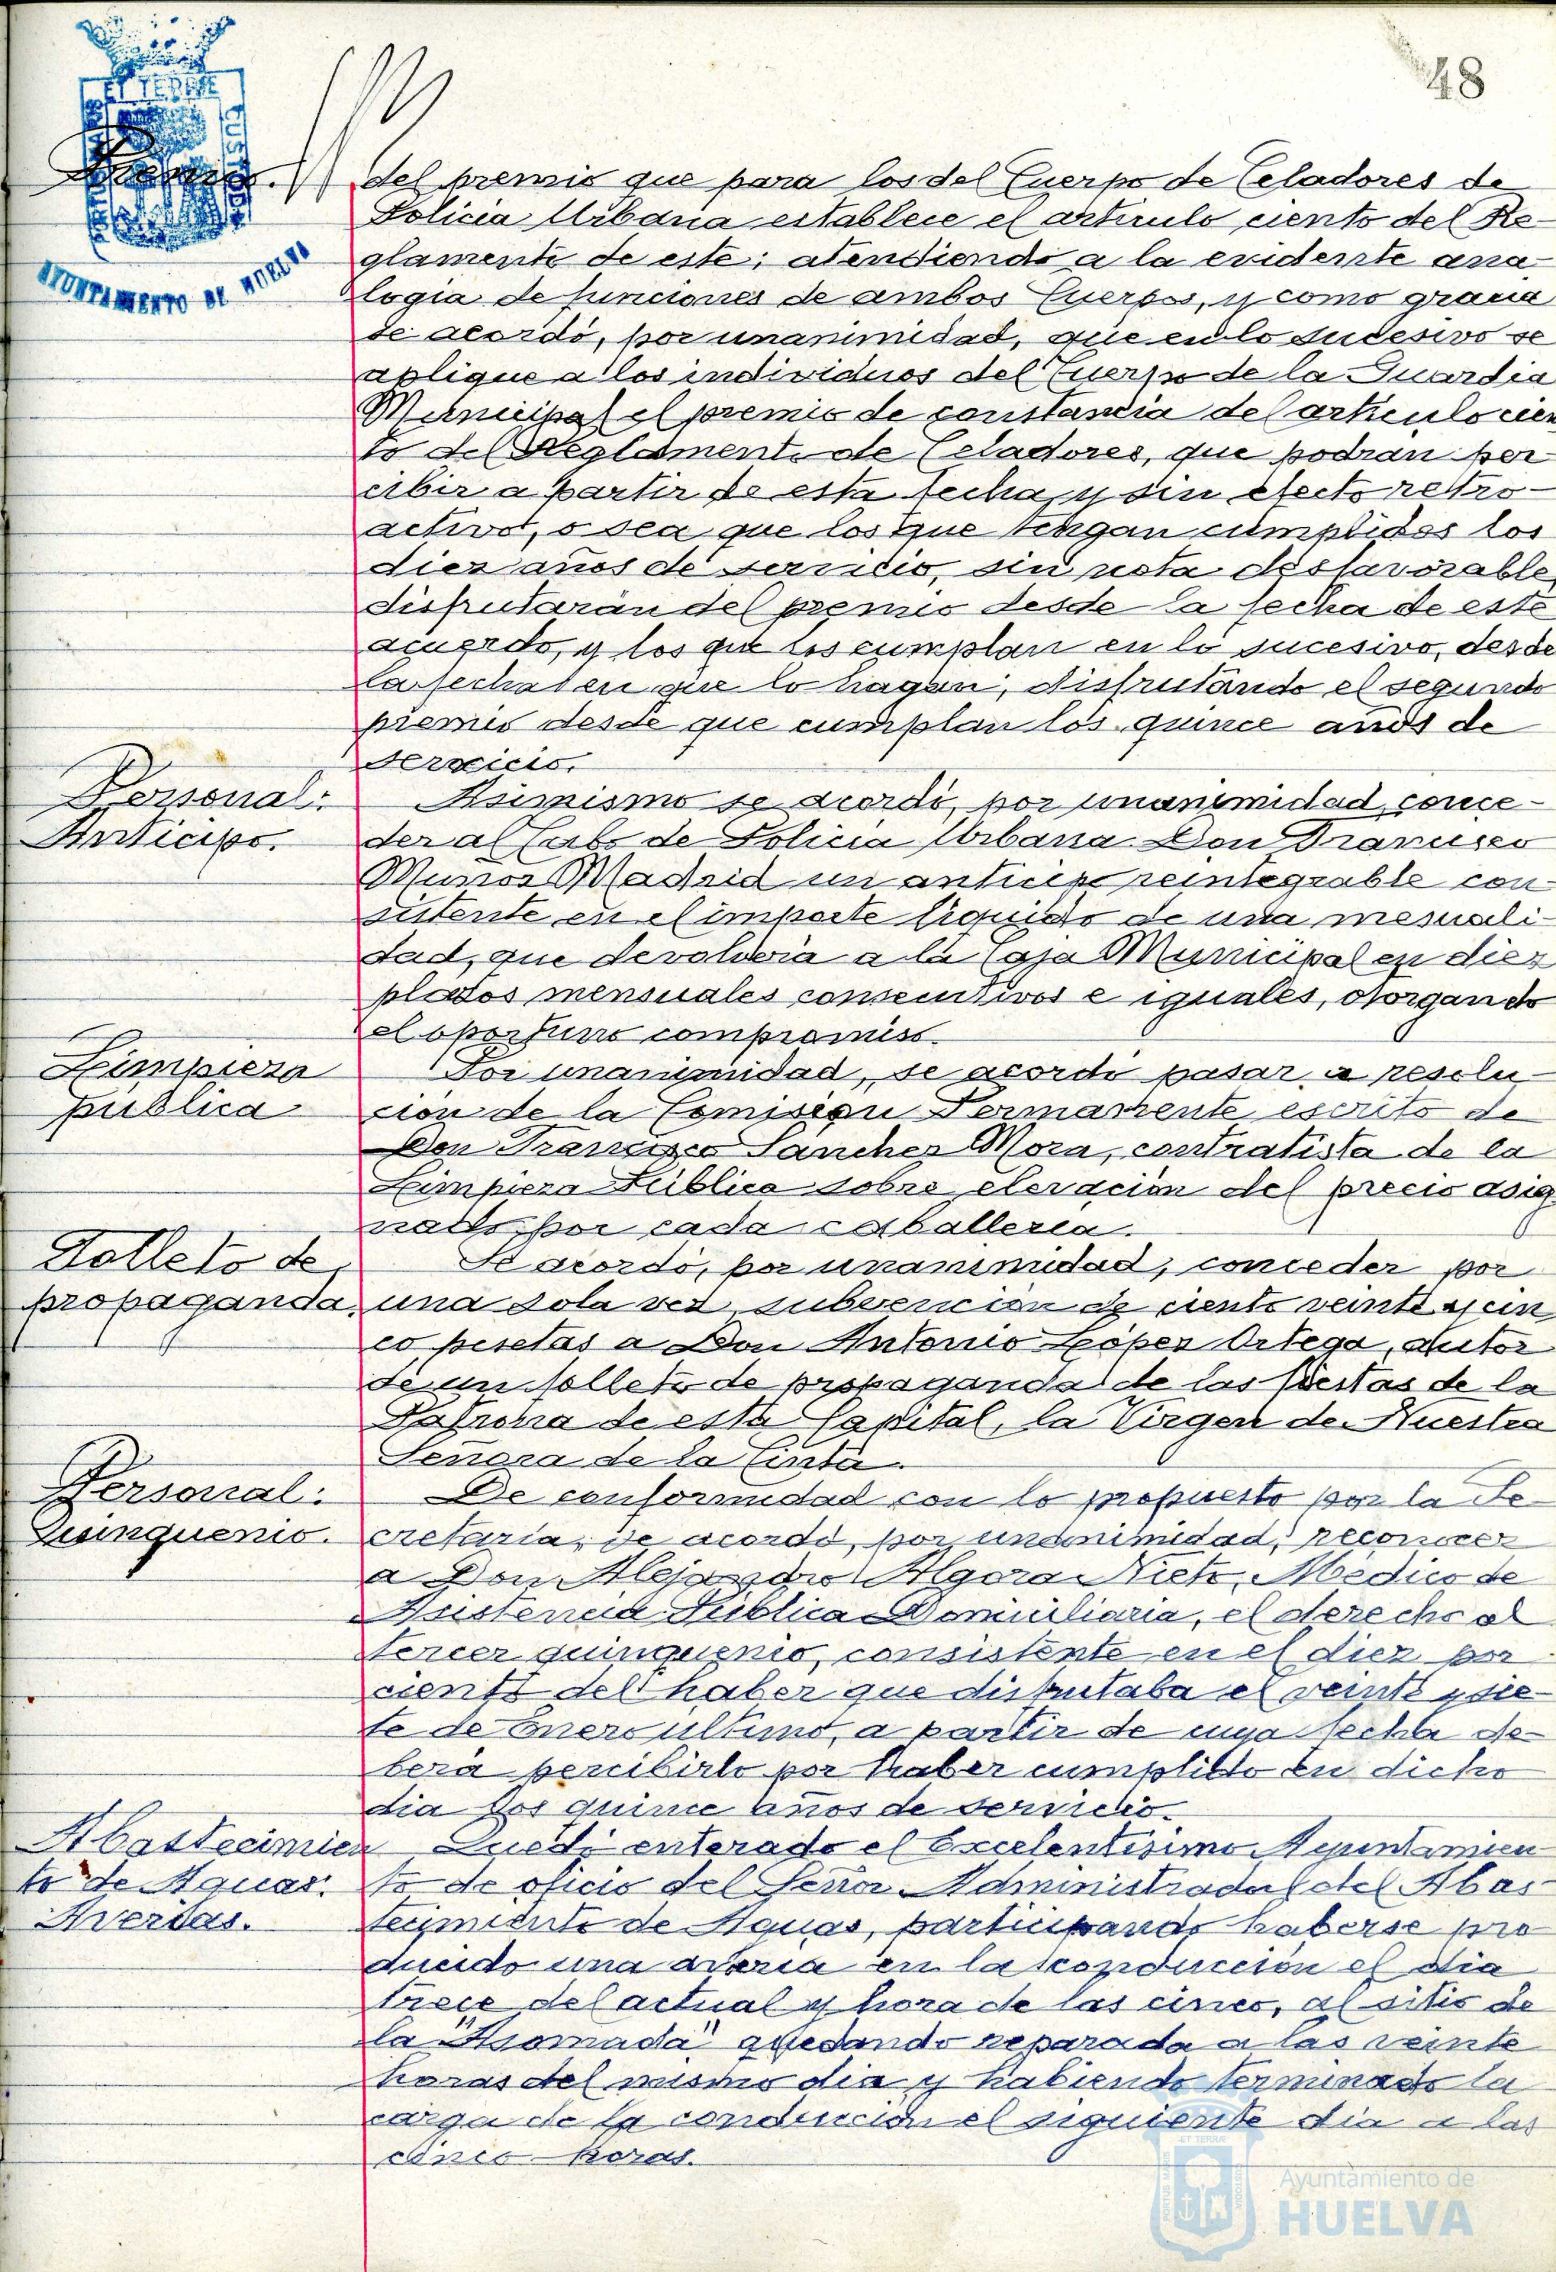 48
PORTUS MARIS
ET TERRE
CUSTODIA
AYUNTAMIENTO DE HUELVA
Premio.
del premio que para los del Cuerpo de Celadores de
Policia Urbana establece el articulo ciento del Re-
glamento de este; atendiendo a la evidente ana-
logia de funciones de ambos Cuerpos, y como gracia
se acordó, por unanimidad, que en lo sucesivo se
aplique a los individuos del Cuerpo de la Guardia
Municipal el premio de constancia del articulo cien
to del Reglamento de Celadores, que podran per
cibir a partir de esta fecha, y sin efecto retro-
activo, o sea que los que tengan cumplidos los
diez años de servicio, sin nota desfavorable,
disfrutarán del premio desde la fecha de este
acuerdo, y los que los cumplan en lo sucesivo, desde
la fecha en que lo hagan, disfrutando el segundo
premio desde que cumplan los quince años de
servicio.
Personal:
Anticipo.
Asimismo se acordó, por unanimidad, conce-
der al Cabo de Policia Urbana Don Francisco
Muñoz Madrid un anticipo reintegrable con-
sistente en el importe liquido de una mensuali-
dad, que devolveria a la Caja Municipal en diez
plazos mensuales consecutivos e iguales, otorgando
el oportuno compromiso.
Limpieza
publica
Por unanimidad, se acordó pasar a resolu-
ción de la Comisión Permanente escrito de
Don Francisco Sanchez Mora, contratista de la
Limpieza Pública sobre elevación del precio asig
nado por cada caballeria.
Folleto de
propaganda.
Se acordó, por unanimidad, conceder por
una sola vez, subvención de ciento veinte y cin
co pesetas a Don Antonio López Ortega, autor
de un folleto de propaganda de las fiestas de la
Patrona de esta Capital, la Virgen de Nuestra
Señora de la Cinta.
Personal:
Quinquenio.
De conformidad con lo propuesto por la Se-
cretaria, se acordó, por unanimidad, reconocer
a Don Alejandro Algora Nieto, Médico de
Asistencia Pública Domiciliaria, el derecho al
tercer quinquenio, consistente en el diez por
ciento del haber que disfrutaba el veinte y sie-
te de Enero último, a partir de cuya fecha de-
berá percibirlo por haber cumplido en dicho
dia los quince años de servicio.
Abastecimien
to de Aguas.
Averias.
Quedó enterado el Excelentisimo Ayuntamien-
to de oficio del Señor Administrador del Abas-
tecimiento de Aguas, participando haberse pro
ducido una averia en la conducción el dia
trece del actual y hora de las cinco, al sitio de
la "Asomada" quedando reparada a las veinte
horas del mismo dia y habiendo terminado la
carga de la conducción el siguiente dia a las
cinco horas.
Ayuntamiento de
HUELVA